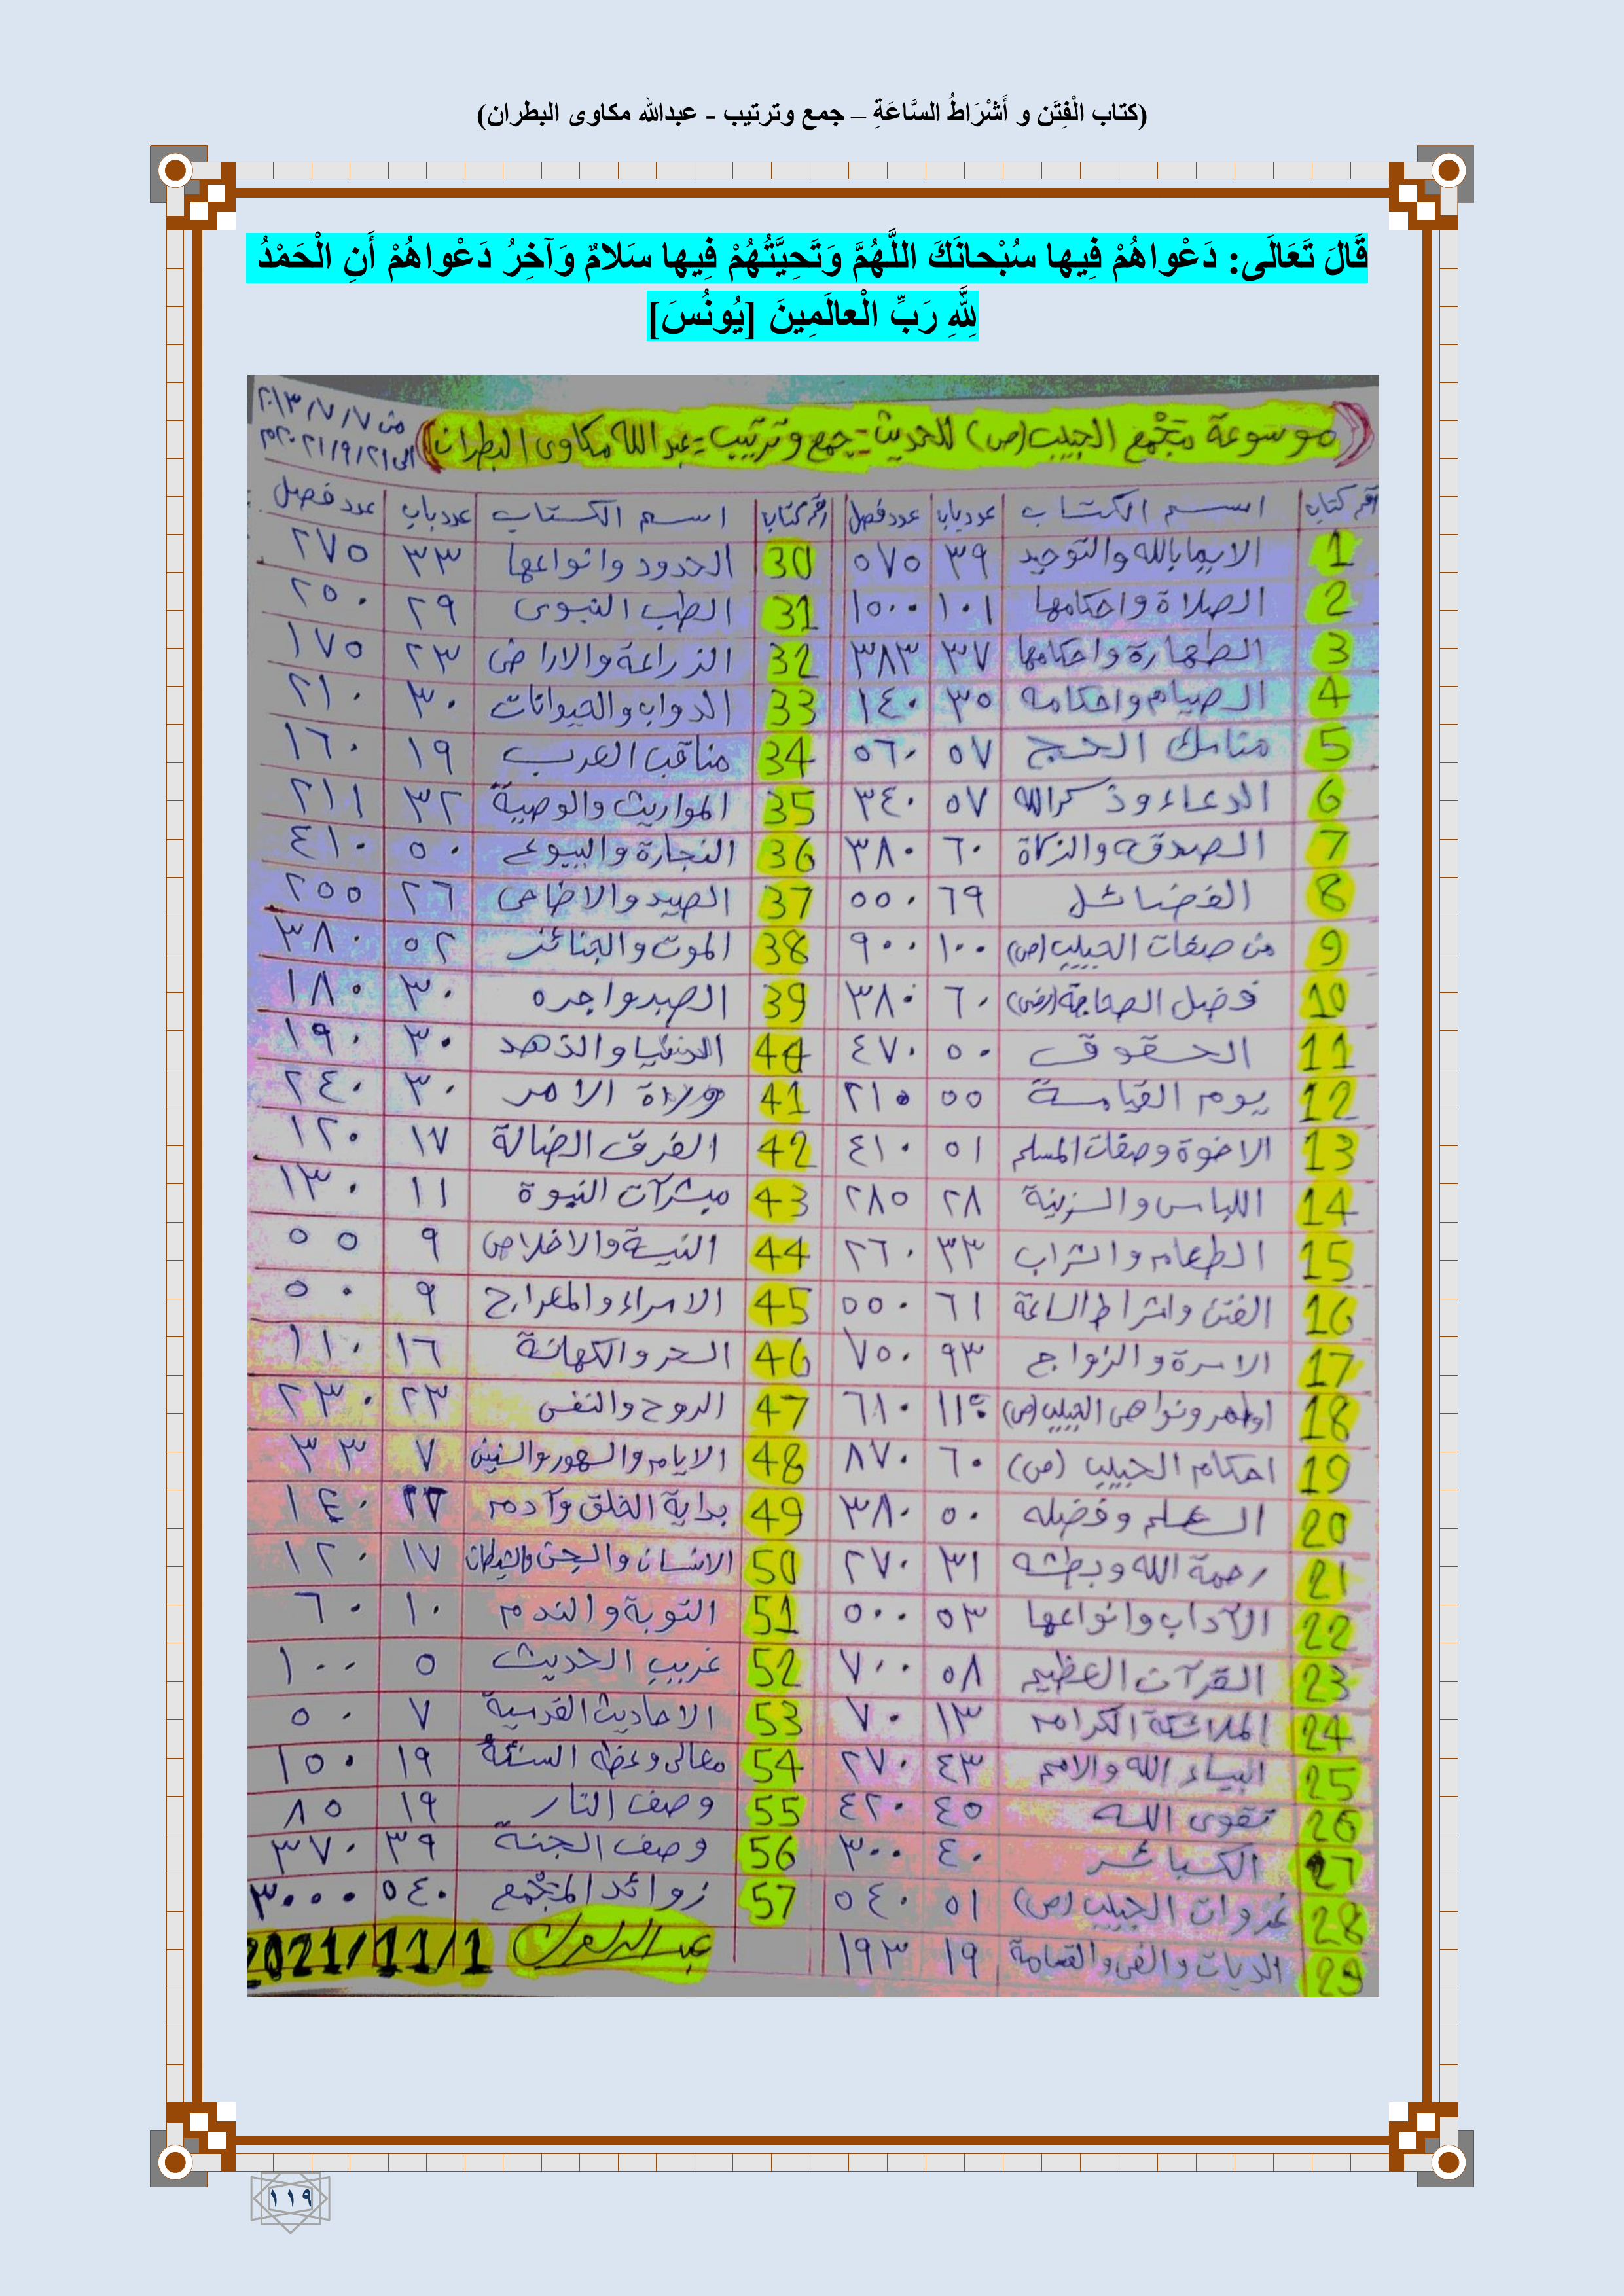 (كتاب الْفِتَن و أَشْرَاطُ السَّاعَةِ – جمع وترتيب - عبدالله مكاوى البطران)
قَالَ تَعَالَى: دَعْواهُمْ فِيها سُبْحانَكَ اللَّهُمَّ وَتَحِيَّتُهُمْ فِيها سَلامٌ وَآخِرُ دَعْواهُمْ أَنِ الْحَمْدُ
لِلَّهِ رَبِّ الْعالَمِينَ [يُونُسَ]
((موسوعة مَجْمع الحبيب (ص) للحديث - جمع وترتيب - عبدالله مكاوى البطران)) من ٢٠١٣/٧/٧
الى ٢٠٢١/٩/٢١م
رقم كتاب اسم الكتاب عدد باب عدد فصل رقم كتاب اسم الكتاب عدد باب عدد فصل
1 الايمابالله والتوحيد ٣٩ ٥٧٥ 30 الحدود وانواعها ٣٣ ٢٧٥
2 الصلاة واحكامها ١٠١ ١٥٠٠ 31 الطب النبوى ٢٩ ٢٥٠
3 الطهارة واحكامها ٣٧ ٣٨٣ 32 الزراعة والاراضى ٢٣ ١٧٥
4 الصيام واحكامه ٣٥ ١٤٠ 33 الدواب والحيوانات ٣٠ ٢١٠
5 مناسك الحج ٥٧ ٥٦٠ 34 مناقب العرب ١٩ ١٦٠
6 الدعاء وذكرالله ٥٧ ٣٤٠ 35 المواريث والوصية ٣٢ ٢١١
7 الصدقه والزكاة ٦٠ ٣٨٠ 36 التجارة والبيوع ٥٠ ٤١٠
8 الفضائل ٦٩ ٥٥٠ 37 الصيد والاضاحى ٢٦ ٢٥٥
9 من صفات الحبيب (ص) ١٠٠ ٩٠٠ 38 الموت والجنائز ٥٢ ٣٨٠
10 فضل الصحابة (رض) ٦٠ ٣٨٠ 39 الصبر واجره ٣٠ ١٨٠
11 الحقوق ٥٠ ٤٧٠ الدنيا والزهد ٣٠ ١٩٠
12 يوم القيامة ٥٥ ٢١٥ 41 ولاة الامر ٣٠ ٢٤٠
13 الاخوة وصفات المسلم ٥١ ٤١٠ 42 الفرق الضالة ١٧ ١٢٠
14 اللباس والزينة ٢٨ ٢٨٥ 43 مبشرات النبوة ١١ ١٣٠
15 الطعام والشراب ٣٣ ٢٦٠ 44 النية والاخلاص ٩ ٥٥
16 الفتن واشراط الساعة ٦١ ٥٥٠ 45 الاسراء والمعراج ٩ ٥٠
17 الاسرة والزواج ٩٣ ٧٥٠ 46 السحر والكهانة ١٦ ١١٠
18 اوامر ونواهى الحبيب (ص) ٦٨٠ 47 الروح والنفس ٢٣ ٢٣٠
19 احكام الحبيب (ص) ٦٠ ٨٧٠ 48 الايام والشهور والسنين ٧ ٣٣
20 العلم وفضله ٥٠ ٣٨٠ 49 بداية الخلق وآدم ١٤٠
21 رحمة الله وبطشه ٣١ ٢٧٠ 50 الانسان والجن والشيطان ١٧ ١٢٠
22 الآداب وانواعها ٥٣ ٥٠٠ 51 التوبة والندم ١٠ ٦٠
23 القرآن العظيم ٥٨ ٧٠٠ 52 غريب الحديث ٥ ١٠٠
24 الملائكة الكرام ١٣ ٧٠ 53 الاحاديث القدسية ٧ ٥٠
25 انبياء الله والامم ٤٣ ٢٧٠ 54 معالى وعظه السنة ١٩ ١٥٠
26 تقوى الله ٤٥ ٤٢٠ 55 وصف النار ١٩ ٨٥
27 الكبائر ٤٠ ٣٠٠ 56 وصف الجنة ٣٩ ٣٧٠
28 غزوات الحبيب (ص) ٥١ ٥٤٠ 57 زوائد المَجْمع ٥٤٠ ٣٠٠٠
29 الديات والفى والقسامة ١٩ ١٩٣ 2021/11/1
١١٩